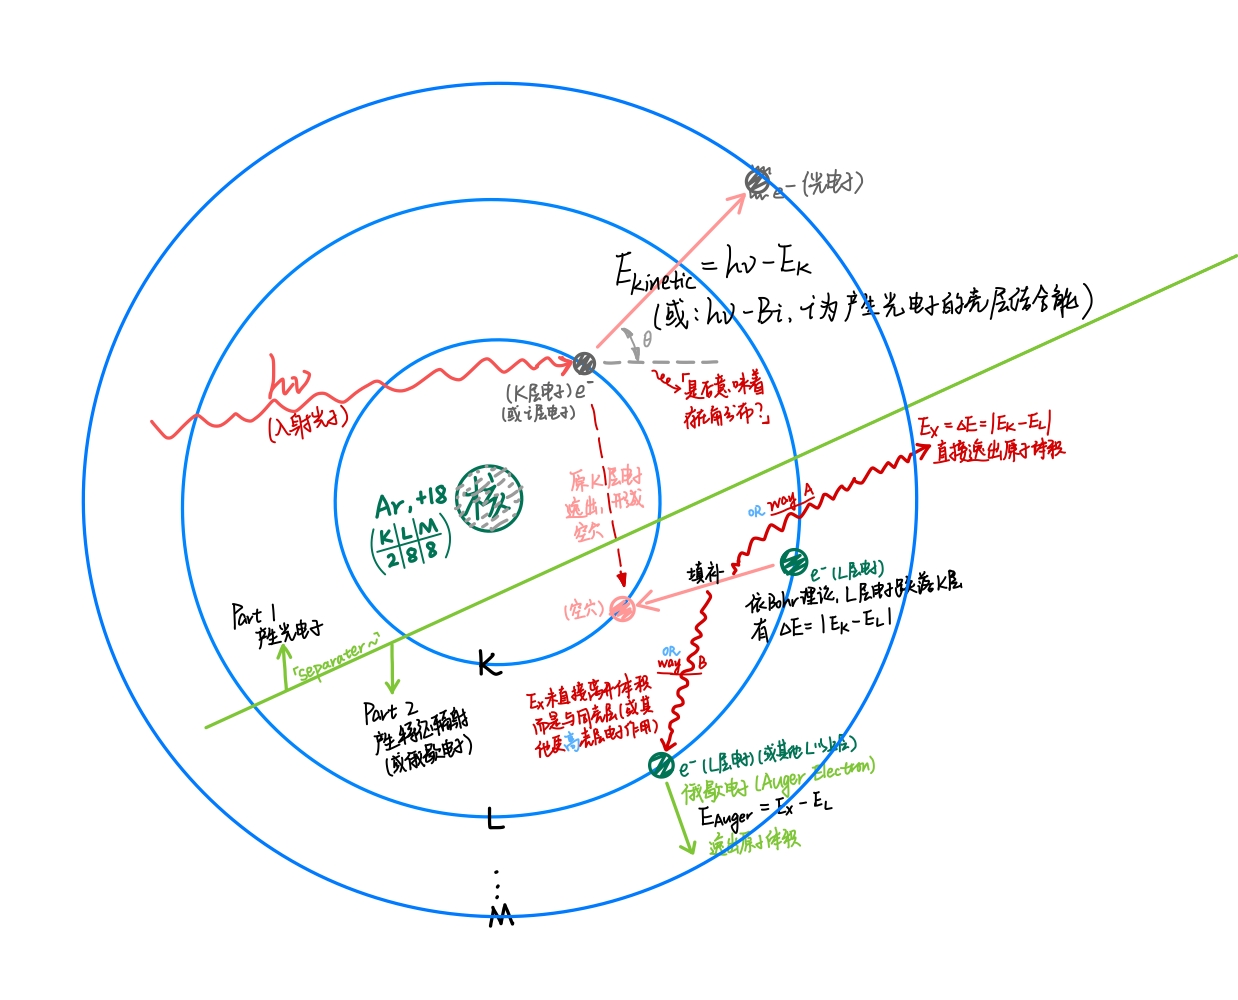 e- (光电子)
Ekinetic = hν - EK
(或: hν - Bi, i为产生光电子的壳层结合能)
θ
hν
(入射光子)
(K层电子) e-
(或i层电子)
「是否意味着
存在角分布?」
Ex = ΔE = |EK - EL|
直接逸出原子体积
原K层电子
逸出,形成
空穴
Ar, +18
核
K L M
2 8 8
OR way A
填补
e- (L层电子)
依Bohr理论, L层电子跃落K层
有 ΔE = |EK - EL|
(空穴)
Part 1
产生光电子
「separater~」
K
OR
way B
Part 2
产生特征辐射
(或俄歇电子)
Ex未直接离开体积
而是与同壳层(或其
他更高壳层电子作用)
e- (L层电子) (或其他L以上层)
俄歇电子 (Auger Electron)
EAuger = Ex - EL
逸出原子体积
L
M